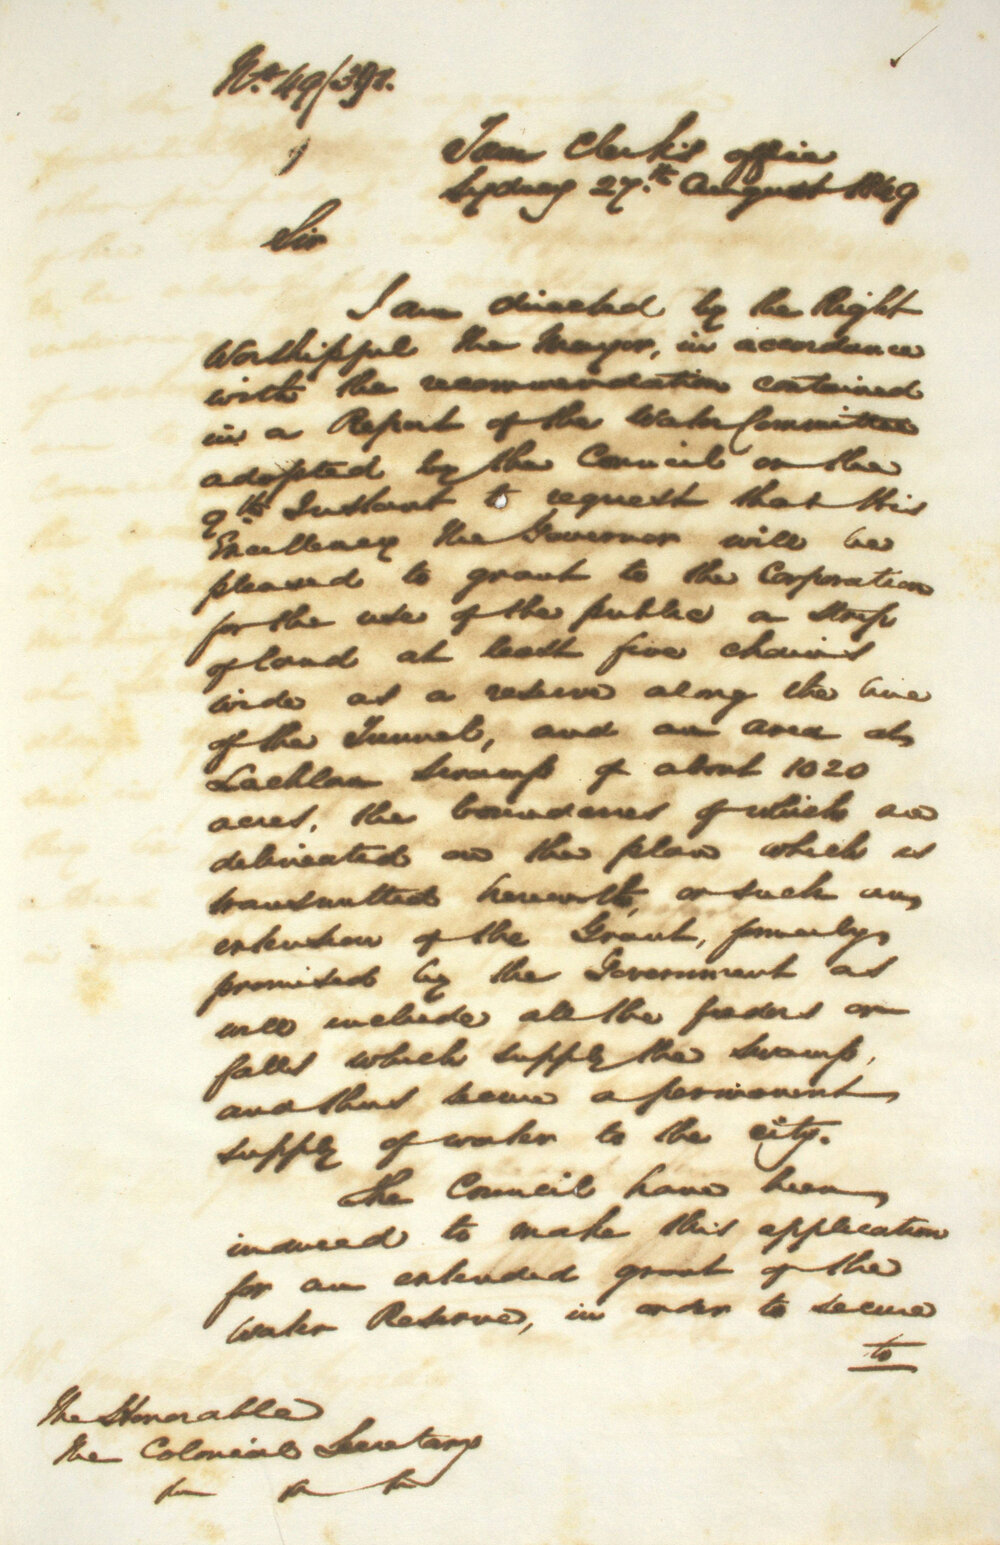 No. 49/391.
Town Clerk's Office
Sydney 27th. August 1849
Sir
I am directed by the Right
Worshipful the Mayor, in accordance
with the recommendation contained
in a Report of the Water Committee
adopted by the Council on the
9th. Instant to request that His
Excellency The Governor will be
pleased to grant to the Corporation
for the use of the public a Strip
of land at least five chains
wide as a reserve along the line
of the Tunnel, and an area at
Lachlan Swamp of about 1020
acres, the boundaries of which are
delineated on the plan which is
transmitted herewith, or such an
extension of the Grant, formerly
promised by the Government as
will include all the feeders or
falls which supply the Swamp,
and thus secure a permanent
supply of water to the city.
The Council have been
induced to make this application
for an extended grant of the
Water Reserve, in order to secure
to
The Honorable
The Colonial Secretary